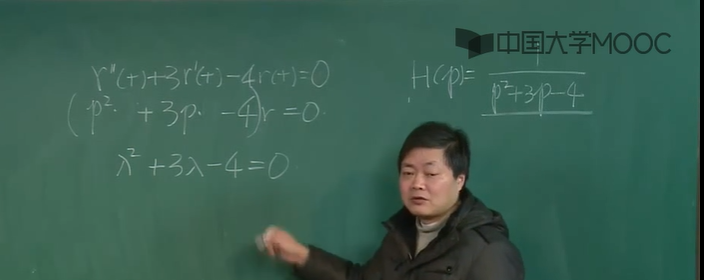 中国大学MOOC
r''(t)+3r'(t)-4r(t)=0
(p² + 3p - 4)r=0
λ²+3λ-4=0
H(p)= 1/(p²+3p-4)